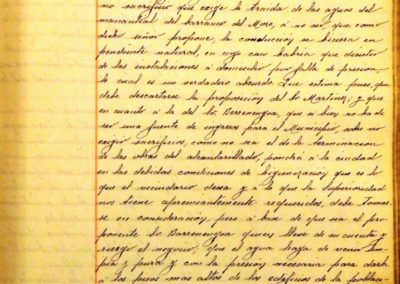 mo sacrificio que exige la traida de las aguas del
manantial del barranco del Moro, á no ser que, como
dicho señor propone, la conducción se hiciera en
pendiente natural, en cuyo caso habría que desistir
de las instalaciones á domicilio por falta de presion,
lo cual es un verdadero absurdo. Que estima pues, que
debe descartarse la proposición del Sr. Martínez; y que
en cuanto á la del Sr. Berrenengoa, que si bien no ha de
ser una fuente de ingresos para el Municipio, sin
exigir sacrificios, como no sea el de la terminacion
de las obras del alcantarillado, pondrá á la ciudad
en las debidas condiciones de higienización que es lo
que el vecindario desea y á lo que la Superioridad
nos tiene apremiantemente requeridos, debe tomar
se en consideración, pero á base de que sea el pro-
ponente Sr. Barrenengoa quien lleve de su cuenta y
riesgo el negocio, que el agua haya de venir lim-
pia y pura y con la presión necesaria para darla
á los pisos mas altos de los edificios de la poblac-